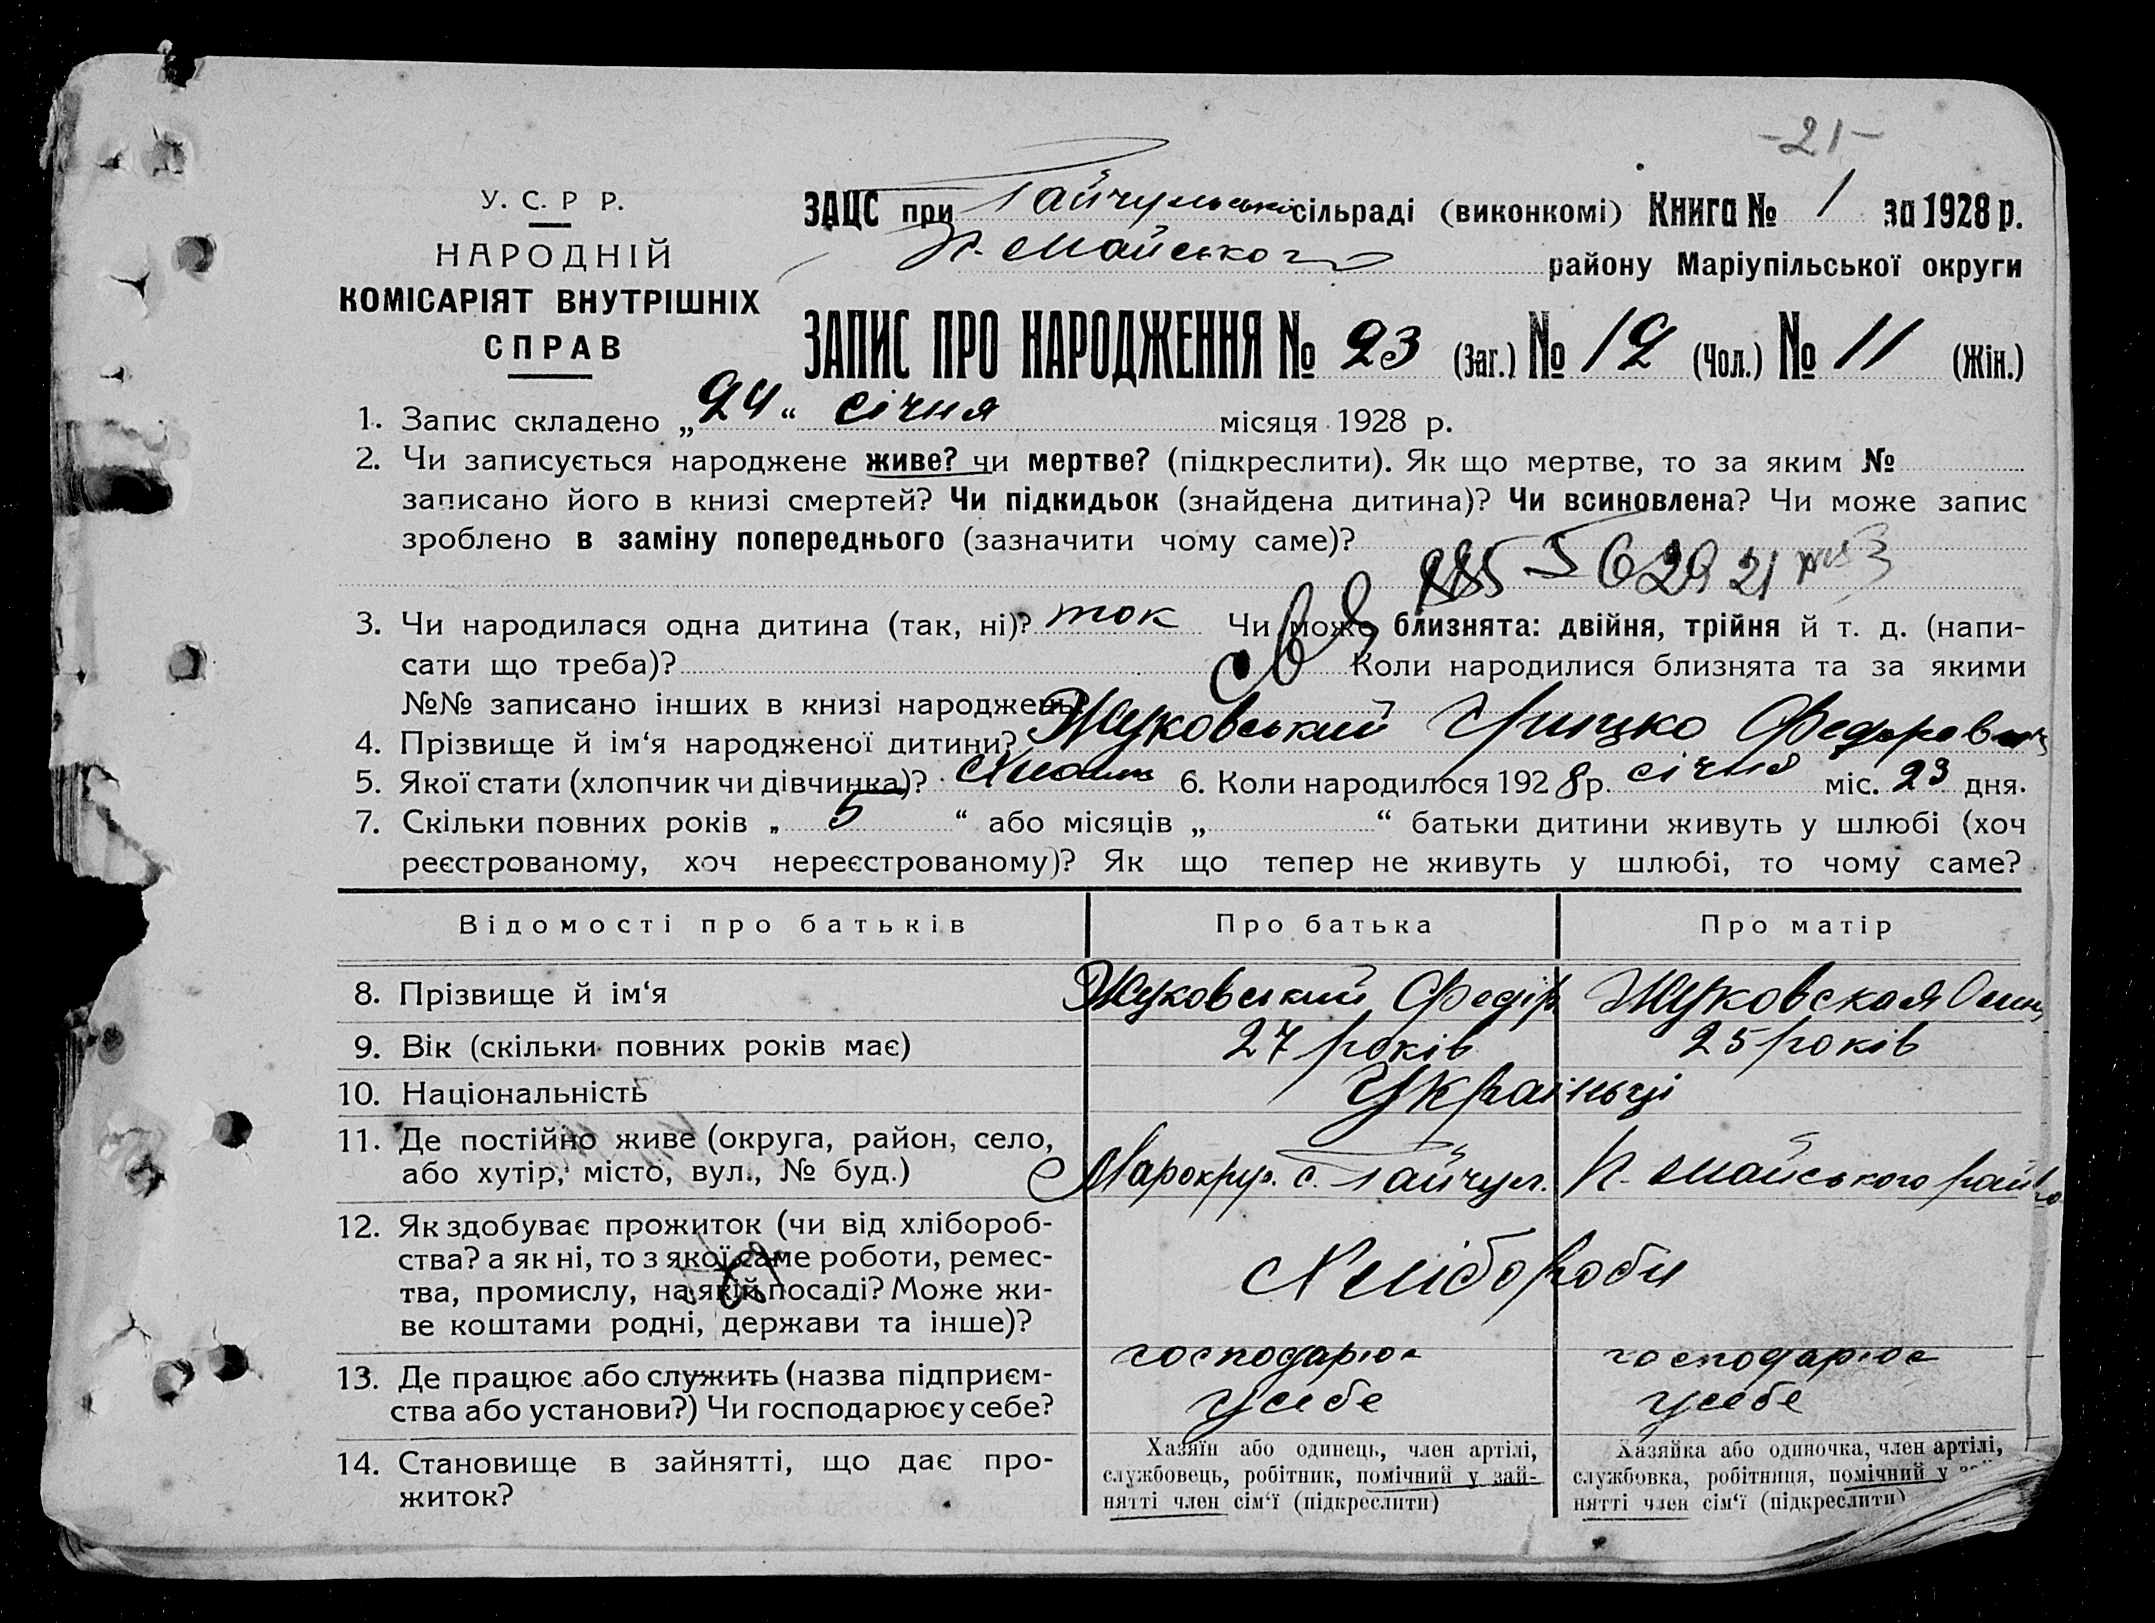 -21-
У. С. Р Р.
НАРОДНІЙ
КОМІСАРІЯТ ВНУТРІШНІХ
СПРАВ
ЗАЦС при Гайчульській сільраді (виконкомі) Книга № 1 за 1928 р.
П. Майського району Маріупільської округи
ЗАПИС ПРО НАРОДЖЕННЯ № 23 (Заг.) № 12 (Чол.) № 11 (Жін.)
1. Запис складено „24“ січня місяця 1928 р.
2. Чи записується народжене живе? чи мертве? (підкреслити). Як що мертве, то за яким №
записано його в книзі смертей? Чи підкидьок (знайдена дитина)? Чи всиновлена? Чи може запис
зроблено в заміну попереднього (зазначити чому саме)?
3. Чи народилася одна дитина (так, ні)? так Чи може близнята: двійня, трійня й т. д. (напи-
сати що треба)? Коли народилися близнята та за якими
№№ записано інших в книзі народжень?
4. Прізвище й ім‘я народженої дитини? Жуковський Грицко Федорович
5. Якої стати (хлопчик чи дівчинка)? 6. Коли народилося 1928 р. січня міс. 23 дня.
7. Скільки повних років „ 5 “ або місяців „ “ батьки дитини живуть у шлюбі (хоч
реєстрованому, хоч нереєстрованому)? Як що тепер не живуть у шлюбі, то чому саме?
Відомості про батьків Про батька Про матір
8. Прізвище й ім‘я Жуковський Федір Жуковская
9. Вік (скільки повних років має) 27 років 25 років
10. Національність Україньці
11. Де постійно живе (округа, район, село,
або хутір, місто, вул., № буд.) Марокруг. с. Гайчул. П. Майського
12. Як здобуває прожиток (чи від хлібороб-
ства? а як ні, то з якої саме роботи, ремес-
тва, промислу, на якій посаді? Може жи-
ве коштами родні, держави та інше)?
Хлібороби
13. Де працює або служить (назва підприєм-
ства або установи?) Чи господарює у себе?
господарює господарює
у себе у себе
14. Становище в зайнятті, що дає про-
житок?
Хазяїн або одинець, член артілі,
службовець, робітник, помічний у зай-
нятті член сім‘ї (підкреслити)
Хазяйка або одиночка, член артілі,
службовка, робітниця, помічний у
нятті член сім‘ї (підкреслити)